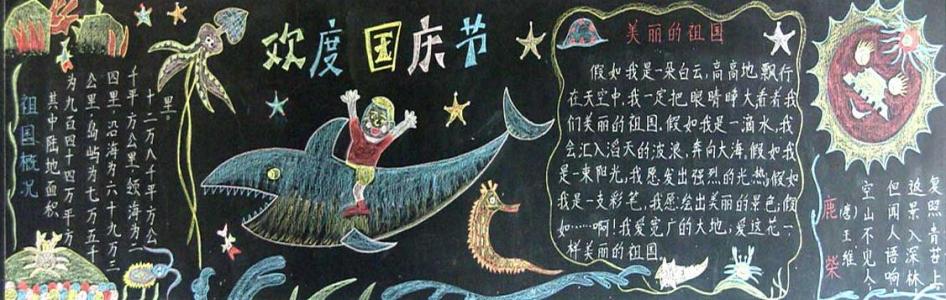 欢度国庆节
祖国概况
其中陆地血积
为九百四十四万平方
公里,岛屿为七万五千
四里,沿海为六十九万三
千平方公里,领海为二
十二万八千平方公
里
美丽的祖国
假如我是一朵白云,高高地飘行
在天空中,我一定把眼睛睁大看着我
们美丽的祖国.假如我是一滴水,我
会汇入滔天的波浪,奔向大海,假如我
是一束阳光,我愿发出强烈的光热;假如
我是一支彩笔,我愿绘出美丽的景色;假
如……啊!我爱宽广的大地;爱这花一
样美丽的祖国
鹿柴
(唐)王维
空山不见人
但闻人语响
返景入深林
复照青苔上